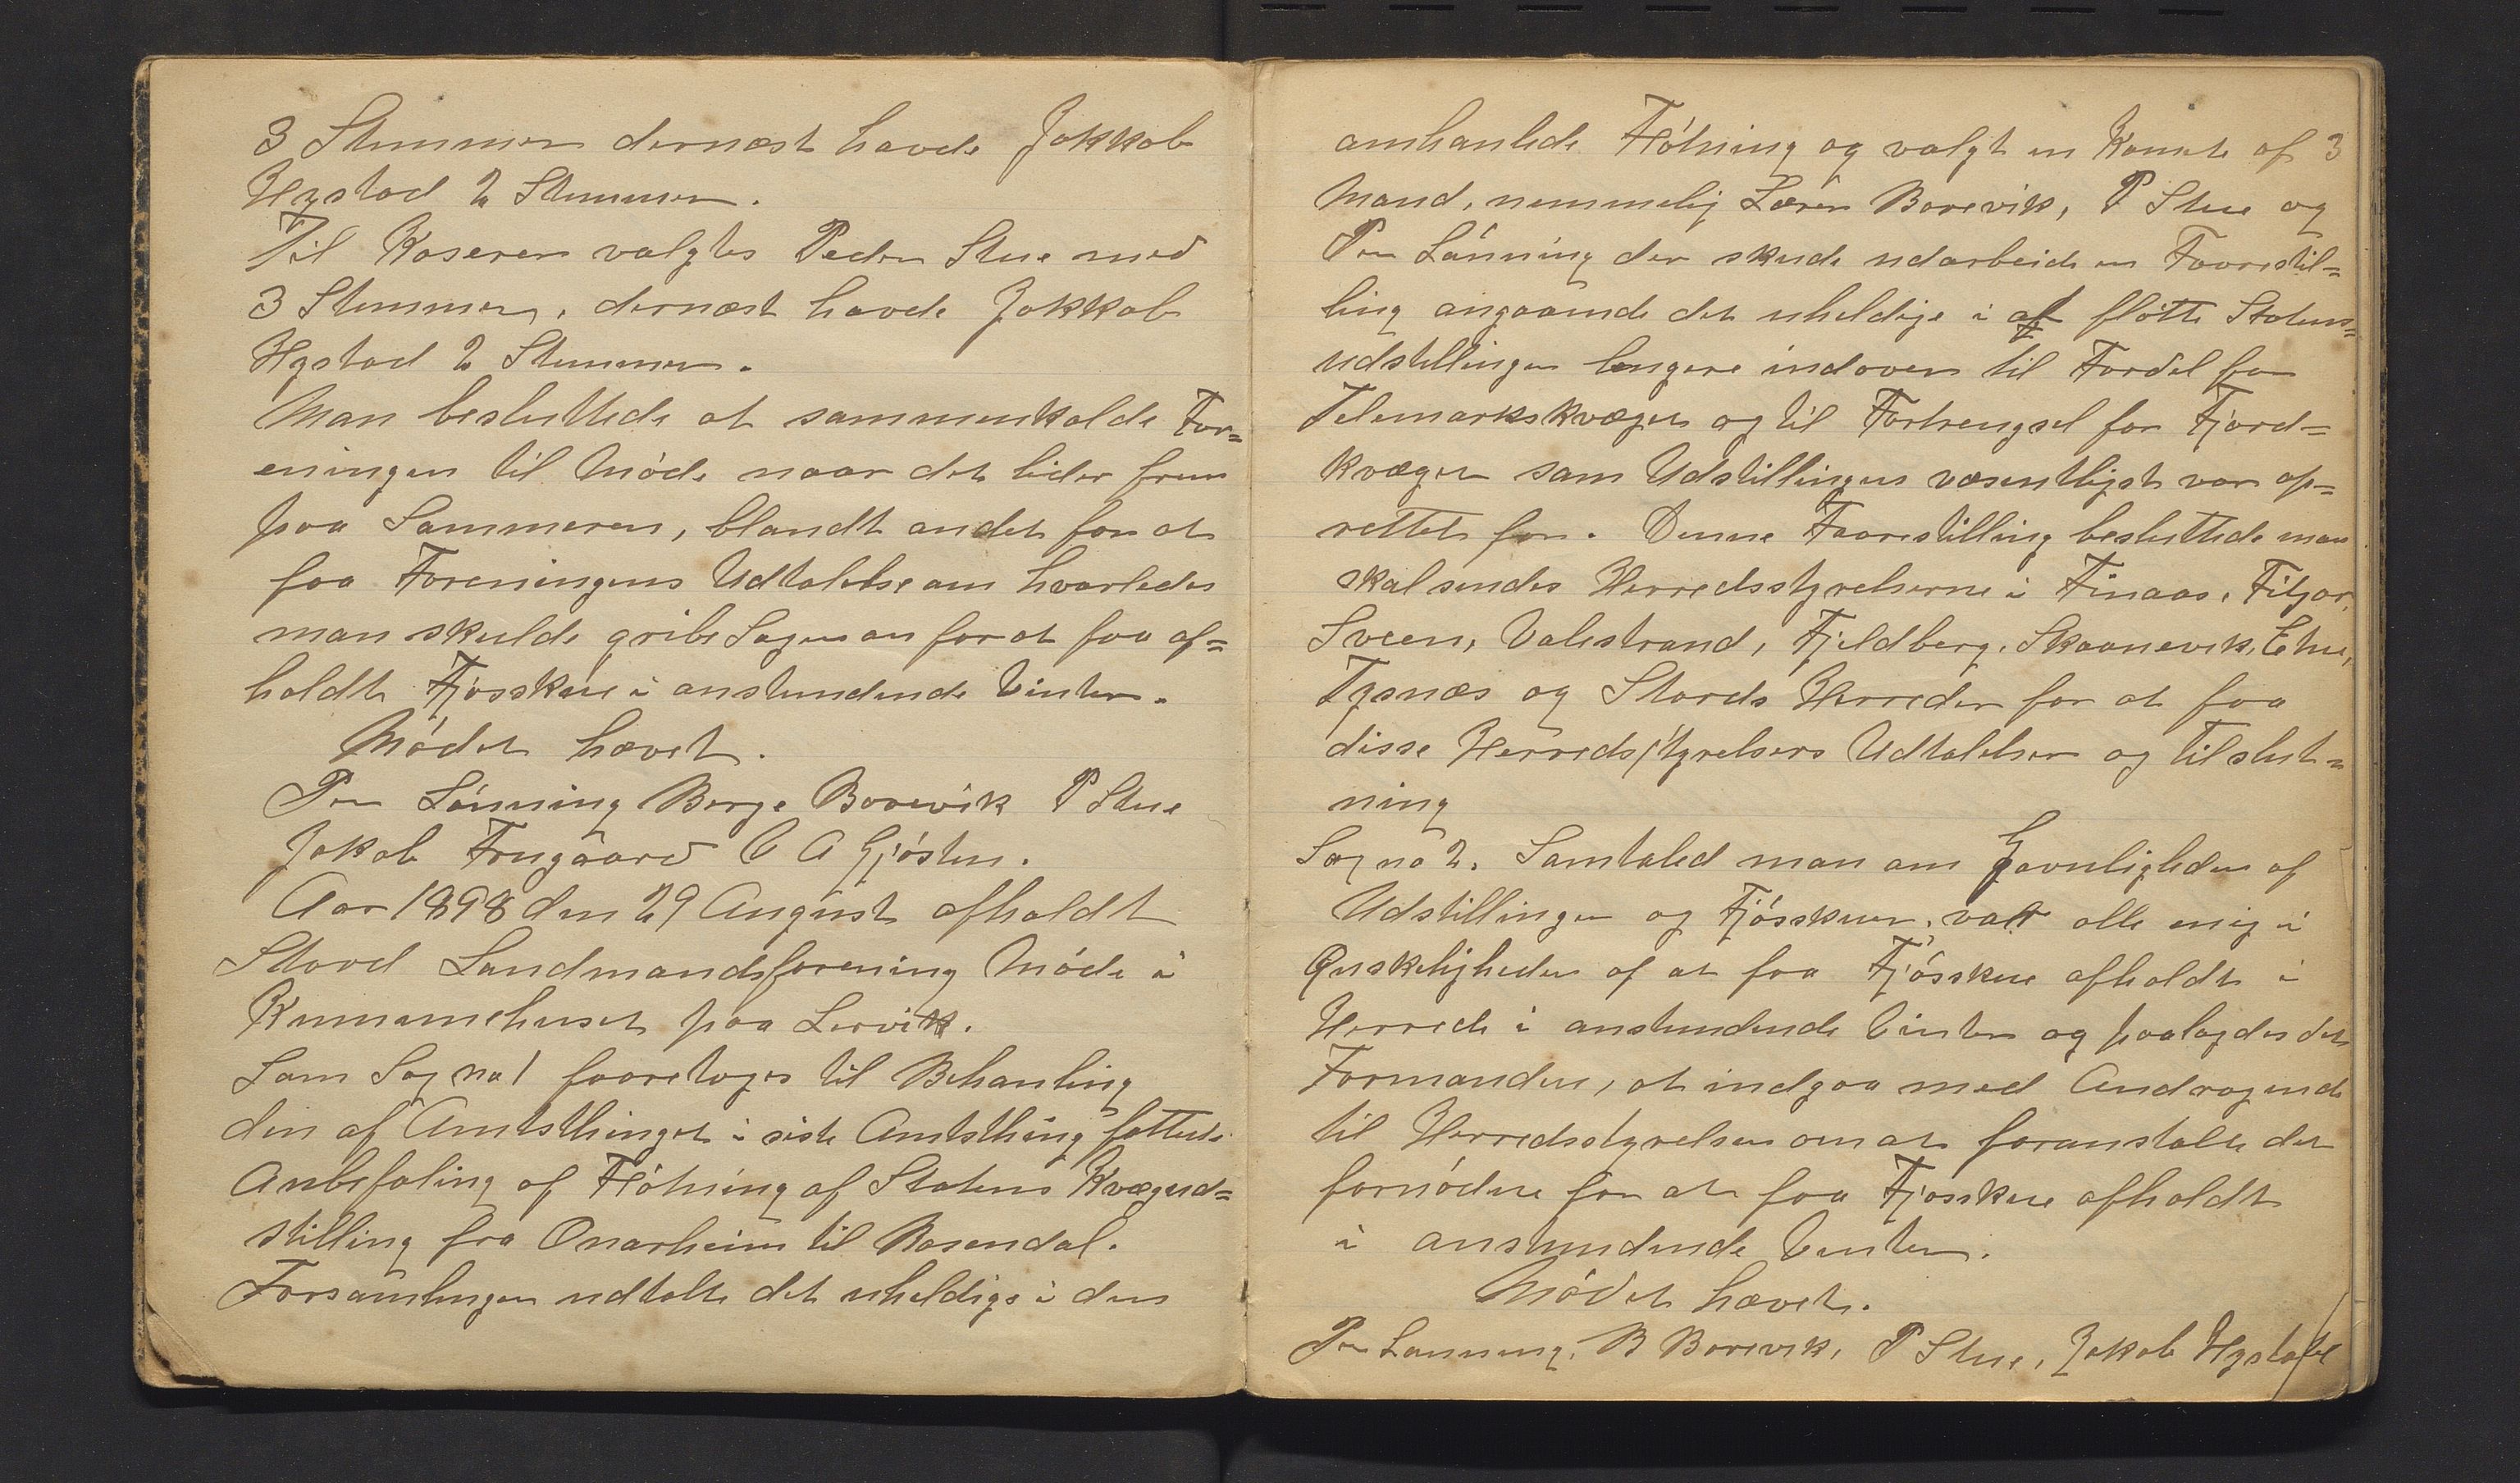 3 Stemmer dernæst havde Jokkob
Hystad 2 Stemmer.
Til Kaserer valgtes Peder Stue med
3 Stemmer, dernæst havde Jokkob
Hystad 2 Stemmer.
Man besluttede at sammenkalde For=
eningen til Möde naar det lider frem
paa Sommeren, blandt andet for at
faa Foreningens Udtalelse om hvorledes
man skulde gribe Sagen an for at faa af=
holdt Fjosskue i anstundende Vinter.
Mödet hævet.
Per Lönning Berge Borevik P Stue
Jakob Frugaard O A Gjösten.
Aar 1898 den 29 August afholdt
Stord Landmandsforening Möde i
Kummunehuset paa Lervik.
Som Sag no 1 fooretoges til Behanling
den af Amtsthinget i siste Amtsthing fattede
Anbefaling af Flötning af Statens Kvægud=
stilling fra Onarheim til Rosendal.
Forsamlingen udtalte det uheldige i den
omhanlede Flötning og valgt en Komite af 3
Mand, nemmelig Lærer Borevik, P Stue og
Per Lönning der skude udarbeide en Foorestil=
ling angaaende det uheldige i at flötte Statens=
udstillingen længere indover til Fordel for
Telemarkskvæget og til Fortrengsel for Fjord=
kvæget som Udstillingen væsentligst var op=
rettet for. Denne Foorestilling besluttede man
skal sendes Herredsstyrelserne i Finaas, Fitjar,
Sveen, Valestrand, Fjeldberg, Skaanevik, Etne,
Tysnæs og Stords Herreder for at faa
disse Herredsstyrelsers Udtalelser og tilslut=
ning
Sag no 2. Samtaled man om Gavnligheden af
Udstillinger og Fjösskuer, var alle enig i
Ønskeligheden af at faa Fjösskue afholdt i
Herrede i anstundende Vinter og paalagdes det
Formanden, at indgaa med Andragende
til Herredsstyrelsen om at foranstalte det
fornödne for at faa Fjosskue afholdt
i anstundende Vinter.
Mödet hævet.
Per Lönning, B Borevik, P Stue, Jakob Hystad